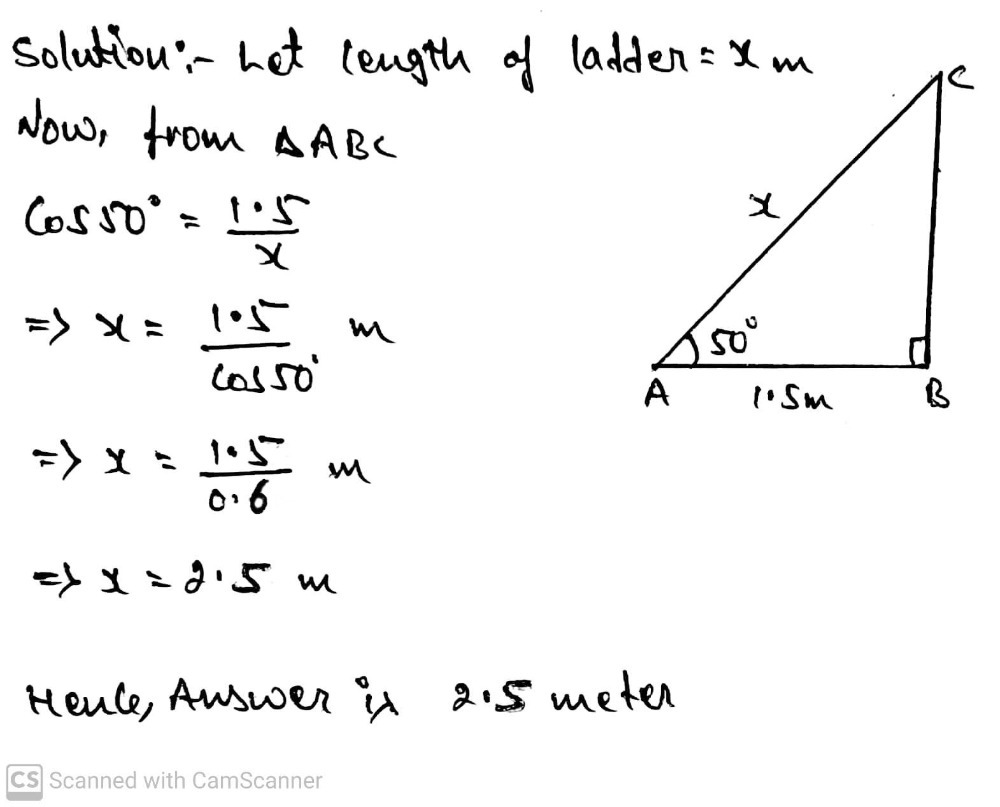 Solution:- Let length of ladder = x m
Now, from ΔABC
Cos 50° = 1.5 / x
=> x = 1.5 / Cos 50° m
=> x = 1.5 / 0.6 m
=> x = 2.5 m
Hence, Answer is 2.5 meter
C
x
50°
A
1.5m
B
CS Scanned with CamScanner